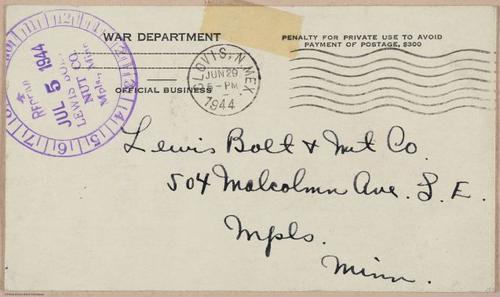 WAR DEPARTMENT
OFFICIAL BUSINESS
PENALTY FOR PRIVATE USE TO AVOID
PAYMENT OF POSTAGE, $300
CLOVIS, N. MEX.
JUN 29
PM
1944
JUL 5 1944
LEWIS BOLT
NUT CO.
Mpls, Minn.
14
15
16
17
Lewis Bolt & Nut Co.
504 Malcolmn Ave. S. E.
Mpls.
Minn.